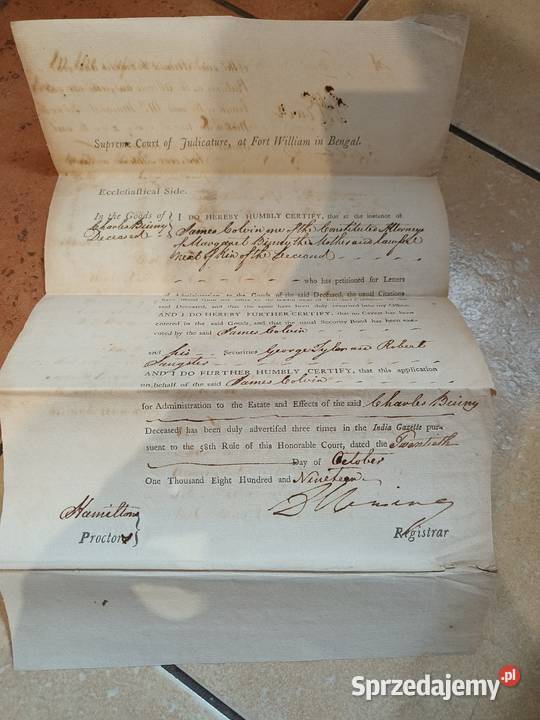 Supreme Court of Judicature, at Fort William in Bengal.
Ecclesiastical Side.
In the Goods of
Charles Binny
Deceased
I DO HEREBY HUMBLY CERTIFY, that at the instance of
James Colvin one of the Constituted Attorneys
of Margaret Binny the Mother and lawful
next of Kin of the Deceased
who has petitioned for Letters
of Administration to the Goods of the said Deceased, the usual Citations
have been
said Deceased, and that the same have been duly returned into my Office.
AND I DO HEREBY FURTHER CERTIFY, that no Caveat has been
entered in the said Goods, and that the usual Security Bond has been exe-
cuted by the said James Colvin
and his Securities George Tyler and Robert
Sangster
AND I DO FURTHER HUMBLY CERTIFY, that this application
on behalf of the said James Colvin
for Administration to the Estate and Effects of the said Charles Binny
Deceased has been duly advertised three times in the India Gazette pur-
suant to the 58th Rule of this Honorable Court, dated the Twentieth
Day of October
One Thousand Eight Hundred and Nineteen
Hamilton
Proctor
Registrar
Sprzedajemy.pl